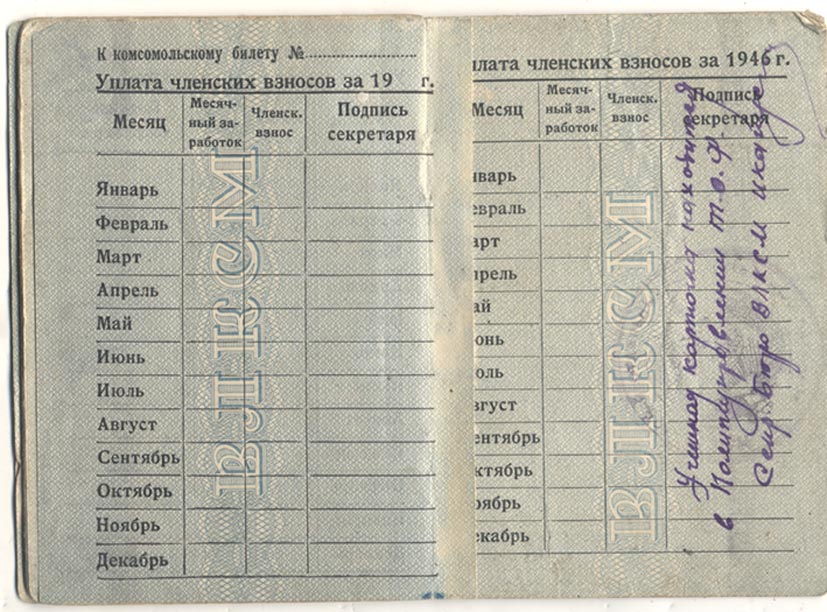 К комсомольскому билету №
Уплата членских взносов за 19 г.
Месяц
Месяч-
ный за-
работок
Членск.
взнос
Подпись
секретаря
Январь
Февраль
Март
Апрель
Май
Июнь
Июль
Август
Сентябрь
Октябрь
Ноябрь
Декабрь
ВЛКСМ
плата членских взносов за 1946 г.
Месяц
Месяч-
ный за-
работок
Членск.
взнос
Подпись
секретаря
нварь
евраль
арт
прель
ай
юнь
юль
вгуст
ентябрь
ктябрь
оябрь
екабрь
ВЛКСМ
Учетная карточка находится
в Политуправлении Т.О.Ф.
Секр бюро ВЛКСМ